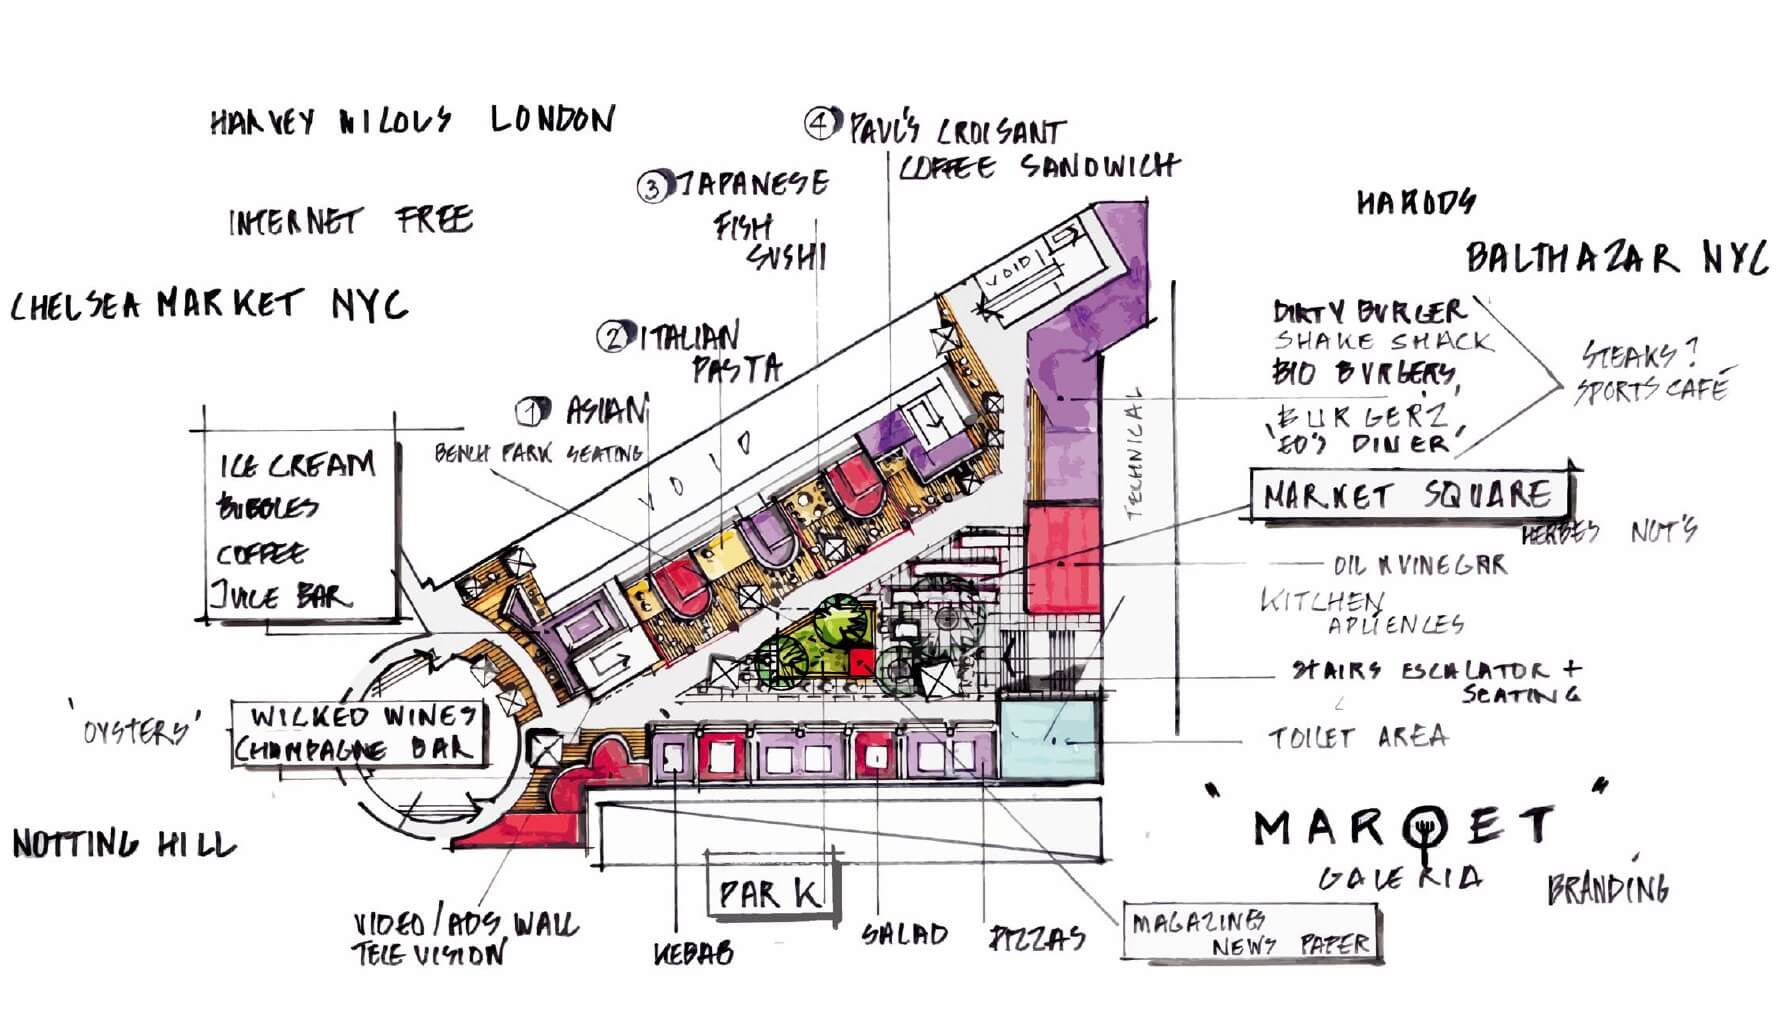 HARVEY NILOUS LONDON
INTERNET FREE
CHELSEA MARKET NYC
④ PAUL'S CROISANT
COFFEE SANDWICH
③ JAPANESE
FISH
SUSHI
② ITALIAN
PASTA
① ASIAN
BENCH PARK SEATING
ICE CREAM
BUBBLES
COFFEE
JUICE BAR
'OYSTERS'
WILKED WINES
CHAMPAGNE BAR
NOTTING HILL
VIDEO/ADS WALL
TELEVISION
KEBAB
PARK
SALAD
PIZZAS
MAGAZINES
NEWS PAPER
VOID
VOID
TECHNICAL
HARODS
BALTHAZAR NYC
DIRTY BURGER
SHAKE SHACK
BIO BURGERS,
'BURGER'Z'
'ED'S DINER'
STEAKS?
SPORTS CAFÉ
MARKET SQUARE
HERBES NUT'S
OIL & VINEGAR
KITCHEN
APLIENCES
STAIRS ESCALATOR +
SEATING
TOILET AREA
"MARQET"
GALERIA
BRANDING